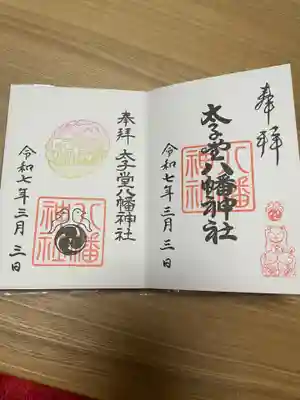 奉拝
太子堂八幡神社
令和七年三月三日
八幡
神社
奉拝
太子堂八幡神社
令和七年三月三日
八幡
神社